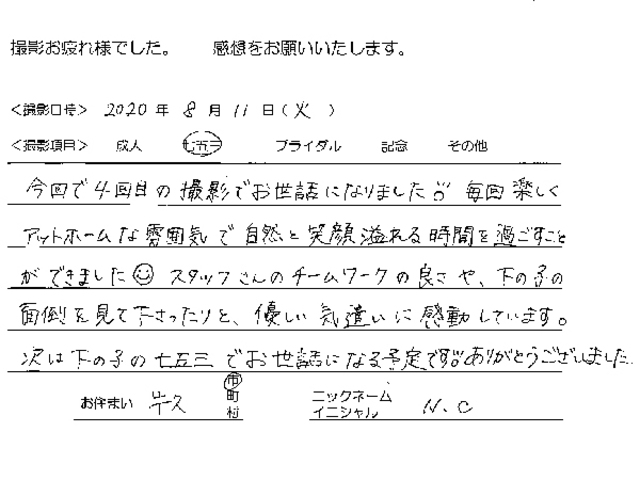 撮影お疲れ様でした。　感想をお願いいたします。
<撮影日時> 2020 年 8 月 11 日 ( 火 )
<撮影項目> 成人 七五三 ブライダル 記念 その他
今回で4回目の撮影でお世話になりました 毎回楽しく
アットホームな雰囲気で自然と笑顔溢れる時間を過ごすこと
ができました☺ スタッフさんのチームワークの良さや、下の子の
面倒を見て下さったりと、優しい気遣いに感動しています。
次は下の子の七五三でお世話になる予定です ありがとうございました
お住まい 市 町 村 ニックネーム イニシャル N.C